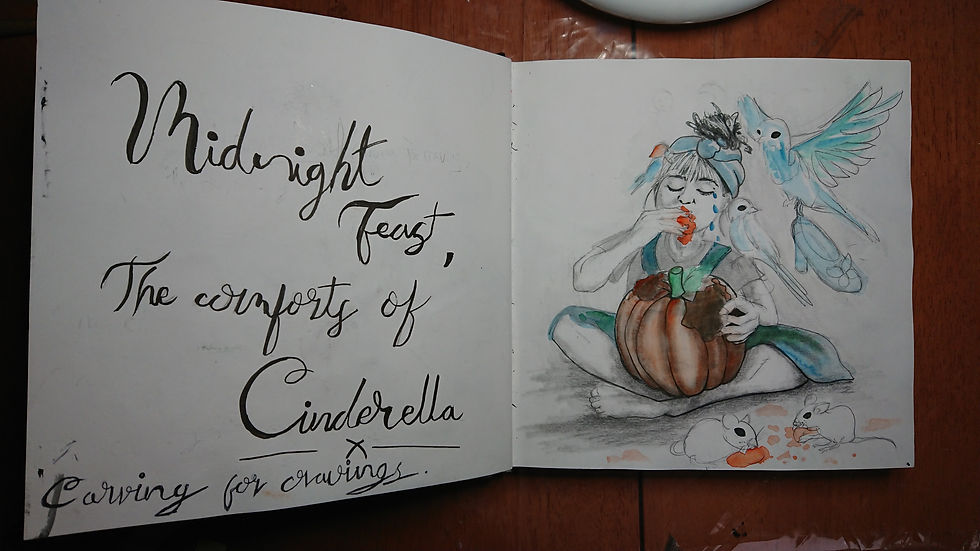 Midnight
Feast,
The comforts of
Cinderella
x
Carving for cravings.